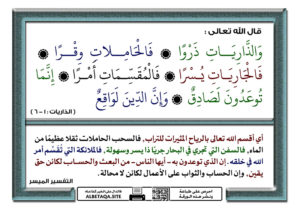 قال الله تعالى :
وَالذَّارِيَاتِ ذَرْوًا ۞ فَالْحَامِلَاتِ وِقْرًا ۞
فَالْجَارِيَاتِ يُسْرًا ۞ فَالْمُقَسِّمَاتِ أَمْرًا ۞ إِنَّمَا
تُوعَدُونَ لَصَادِقٌ ۞ وَإِنَّ الدِّينَ لَوَاقِعٌ
( الذاريات : ١ - ٦ )
أي أقسم الله تعالى بالرياح المثيرات للتراب، فالسحب الحاملات ثقلا عظيمًا من
الماء، فالسفن التي تجري في البحار جريًا ذا يسر وسهولة، فالملائكة التي تُقَسِّم أمر
الله في خلقه. إن الذي توعدون به -أيها الناس- من البعث والحساب لكائن حق
يقين، وإن الحساب والثواب على الأعمال لكائن لا محالة.
التفسير الميسر
احرص على طباعة
ونشر هذه الورقة
ALBETAQA.SITE